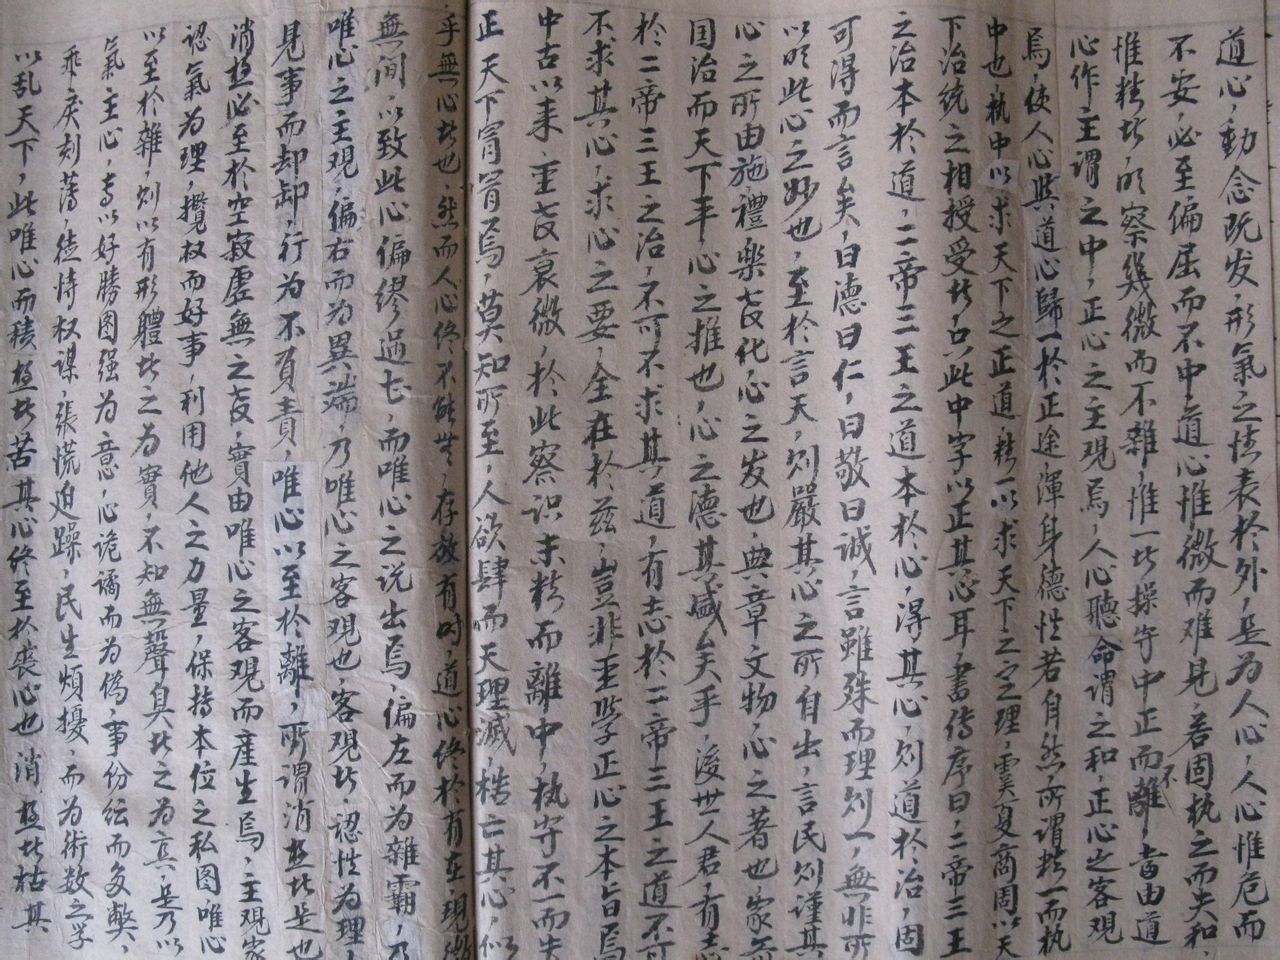 道心,動念既发,形氣之情表於外,是为人心,人心惟危而
不安,必至偏屈而不中,道心惟微而难見,若固执之而失和,
惟精者,明察幾微而不雜,惟一者操守中正而不離,當由道
心作主謂之中,正心之主観焉,人心聽命謂之和,正心之客観
焉,使人心與道心歸一於正途,渾身德性若自然,所謂精一而执
中也,执中以求天下之正道,精一以求天下之之理,虞夏商周以天
下治統之相授受者,只此中字以正其心耳,書传序曰二帝三王
之治本於道,二帝三王之道本於心,得其心,则道於治,固
可得而言矣,曰德曰仁,曰敬曰诚,言雖殊而理则一,無非所
以明此心之妙也,至於言天,则嚴其心之所自出,言民则谨其
心之所由施,禮樂教化,心之发也,典章文物,心之著也,家齐
国治而天下平,心之推也,心之德其盛矣乎,後世人君,有志
於二帝三王之治,不可不求其道,有志於二帝三王之道不可
不求其心,求心之要,全在於兹,豈非聖學正心之本旨焉
中古以来,聖教衰微,於此察识未精而離中,执守不一而失
正,天下冥冥焉,莫知所至,人欲肆而天理滅,梏亡其心,似
乎無心者也,然而人心终不能無,存放有时,道心终於有在,現微
無间,以致此心偏缪過甚,而唯心之说出焉,偏左而为雜霸,乃
唯心之主観,偏右而为異端,乃唯心之客観也,客観者,認性为理,
見事而却卸,行为不負責,唯心以至於離,所謂消极者是也
消极必至於空寂虚無之教,實由唯心之客観而產生焉,主観家
認氣为理,攬权而好事,利用他人之力量,保持本位之私图,唯心
以至於雜,则以有形體者之为實,不知無聲臭者之为真,是乃以
氣主心,专以好勝图强为意,心诡谲而为偽,事份纭而多弊,
乖戾刻薄,徒恃权谋,張慌迫躁,民生煩擾,而为術数之学
以乱天下,此唯心而積极者苦其心终至於丧心也 消极者枯其